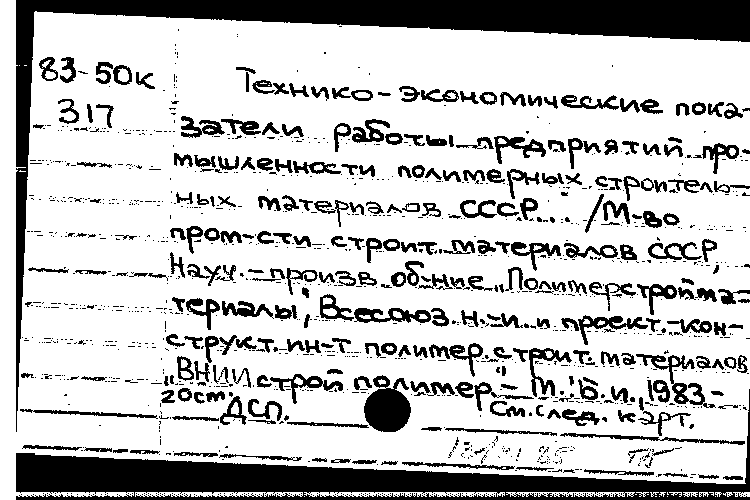 83-50к
317
Технико-экономические пока-
затели работы предприятий про-
мышленности полимерных строитель-
ных материалов СССР... /М-во
пром-сти строит. материалов СССР,
Науч.-произв. об-ние „Полимерстройма-
териалы", Всесоюз. н.-и. и проект.-кон-
структ. ин-т полимер. строит. материалов
„ВНИИстройполимер". - М.: Б.и., 1983-
20см. ДСП.
См. след. карт.